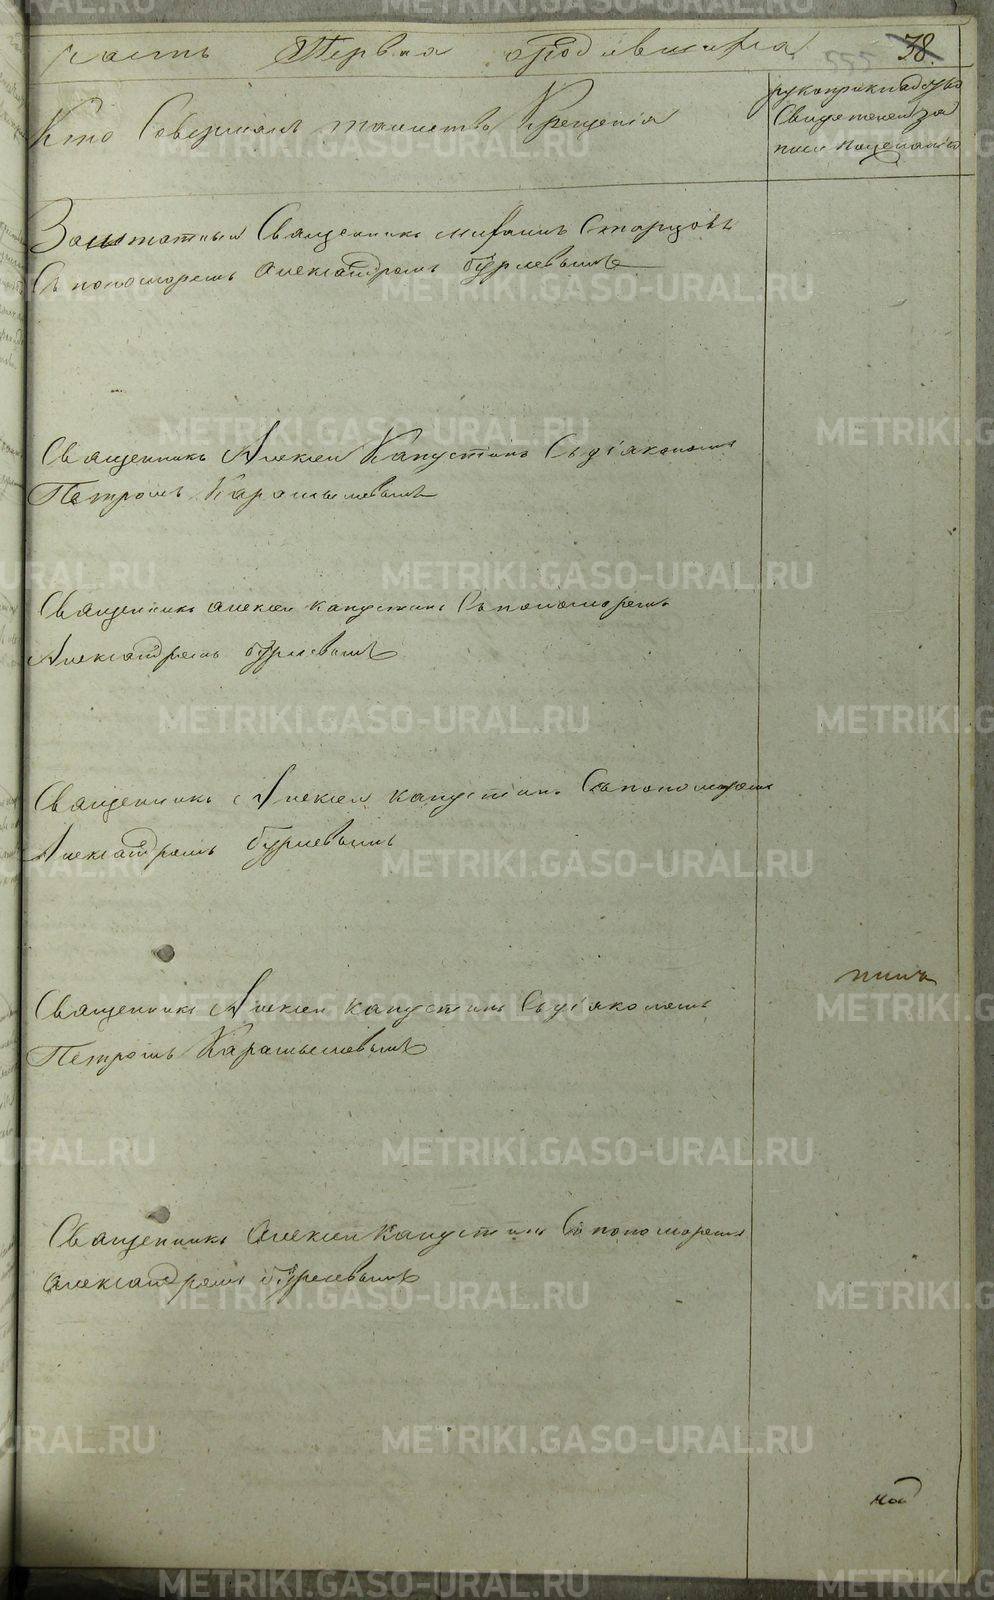 часть Первая о родившихся 38.
Кто Совершалъ таинство Крещенiя
рукоприкладство
Свидетелей за
писи по желанiю
Заштатный Священникъ михаилъ Старцовъ
Съ пономаремъ александромъ бурлевымъ
Священникъ Алексей Капустинъ Съ дiакономъ
Петромъ Карамышевымъ
Священникъ алексеи капустинъ Съ пономаремъ
Александромъ бурлевымъ
Священникъ Алексеи капустинъ Съ пономаремъ
Александромъ бурлевымъ
Священникъ Алексеи капустинъ Съ дiакономъ
Петромъ Карамышевымъ
Священникъ алексеи капустинъ Съ пономаремъ
александромъ бурлевымъ
METRIKI.GASO-URAL.RU